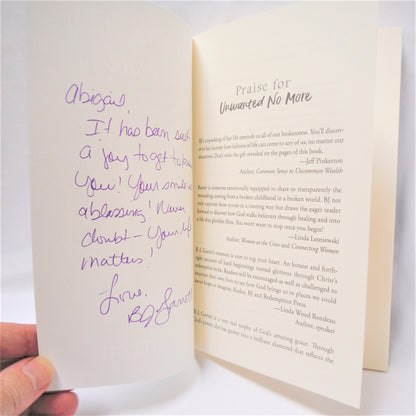 Abigail,
It has been such
a joy to get to know
you! Your smile is
a blessing! Never
doubt - Your life
matters!
Love,
BJ Garrett
Praise for
Unwanted No More
BJ's unpacking of her life reminds us all of our brokenness. You'll discov-
er in her journey how fullness of life can come to any of us, no matter our
situations. Don't miss the gift revealed on the pages of this book.
—Jeff Pinkerton
Author, Common Sense to Uncommon Wealth
Rarely is someone emotionally equipped to share so transparently the
wounding comes from a broken childhood in a broken world. BJ not
only shares true stories in a coming way but draws the eager reader
forward to discover how God walks believers through healing and into
a life of living in victory. You won't want to stop once you begin!
—Linda Lesniewski
Author, Women at the Cross and Connecting Women
B.J. Garrett's memoir is sure to tug your heart. An honest and forth-
right account of hard beginnings turned glorious through Christ's
redemptive work. Readers will be encouraged as well as challenged to
live their lives to see how God brings us to places we could
never hope or imagine. Kudos, BJ and Redemption Press
—Linda Wood Rondeau
Author, speaker
B. J. Garrett is a very real trophy of God's amazing grace. Through
God's power, she has grown into a brilliant diamond that reflects the